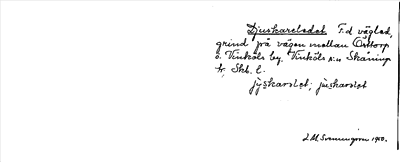 Djuskareledet F.d vägled,
grind på vägen mellan Osttorp
o. Vinköls by. Vinköls sn Skåning
hr Skb. l.
jyskarslet; juskarslet
J.M. Svenningson 1950.